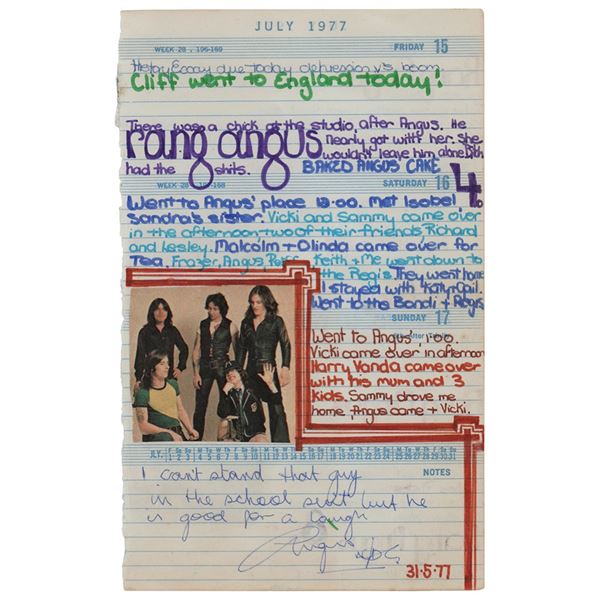 JULY 1977
WEEK 28 . 196-169 FRIDAY 15
History Essay due today depression v's boom.
Cliff went to England today!
There was a chick at the studio, after Angus. He
rang angus nearly got with her. She
wouldn't leave him alone.
had the shits. BAKED ANGUS CAKE
WEEK 28 . 197-168 SATURDAY 16
Went to Angus' place 12:00. Met Isobel,
Sandra's sister. Vicki and Sammy came over
in the afternoon two of their friends, Richard
and Lesley. Malcolm + Olinda came over for
Tea. Frazer, Angus, Keith + Me went down to
the Regis. They went home
I stayed with
Went to the Bondi + Regis
SUNDAY 17
Went to Angus' 1:00.
Vicki came over in afternoon
Harry Vanda came over
with his mum and 3
kids. Sammy drove me
home, Angus came + Vicki.
JLY.
NOTES
I can't stand that guy
in the school suit but he
is good for a laugh
Angus
31·5·77